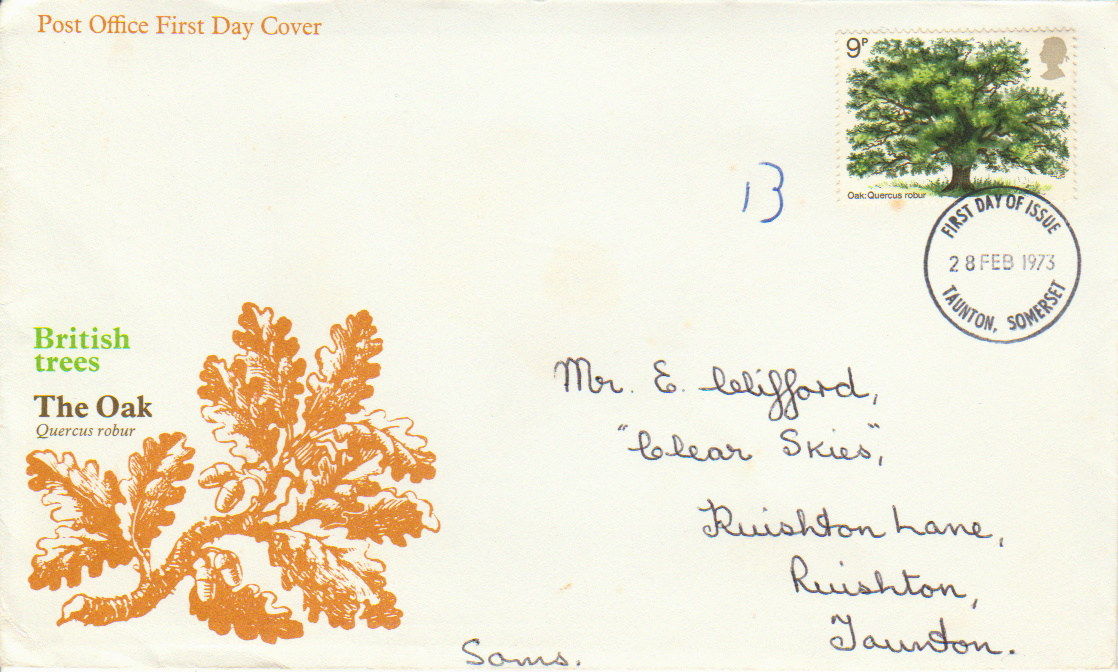 Post Office First Day Cover
9P
Oak:Quercus robur
13
FIRST DAY OF ISSUE
28 FEB 1973
TAUNTON, SOMERSET
British
trees
The Oak
Quercus robur
Mr. E. Clifford,
"Clear Skies",
Ruishton Lane,
Ruishton,
Taunton.
Soms.